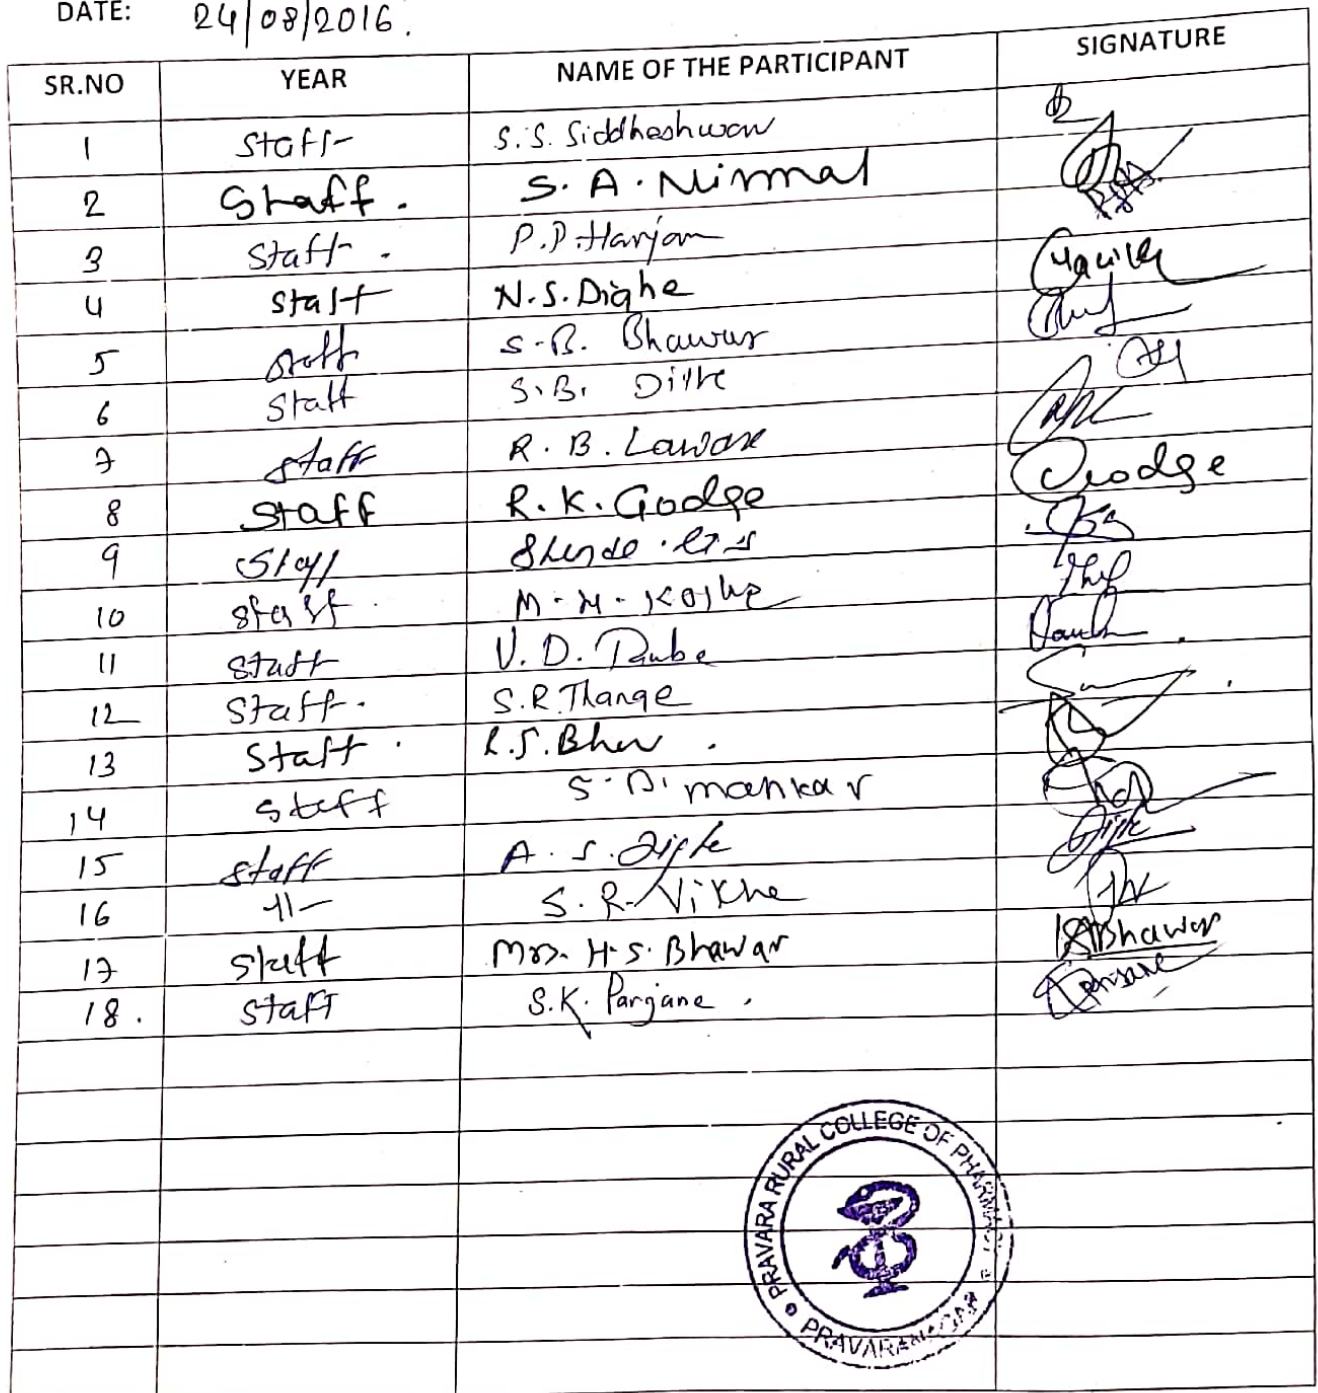 DATE: 24/08/2016.
SR.NO YEAR NAME OF THE PARTICIPANT SIGNATURE
1 Staff S.S. Siddheshwar
2 Staff. S. A. Nirmal
3 Staff. P.P. Harjan
4 Staff N.S. Dighe
5 Staff S.B. Bhawar
6 Staff S.B. Dighe
7 Staff R. B. Laware
8 Staff R. K. Godge Godge
9 Staff Shinde G.S
10 Staff. M. H. Kolhe
11 Staff V. D. Tambe
12 Staff. S.R. Thange
13 Staff. R.S. Bhor.
14 Staff S. D. Mankar
15 Staff A. S. Dighe
16 -11- S. R. Vikhe
17 Staff Mrs. H. S. Bhawar Bhawar
18. Staff S.K. Parjane. Parjane
PRAVARA RURAL COLLEGE OF PHARMACY
PRAVARANAGAR